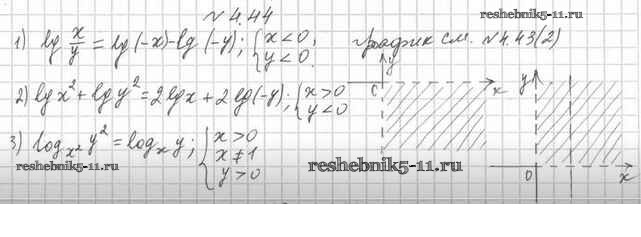 № 4.44
reshebnik5-11.ru
1) lg x/y = lg(-x) - lg(-y); { x < 0, y < 0. график см. №4.43(2)
2) lg x² + lg y² = 2 lg x + 2 lg(-y); { x > 0 y < 0
3) log_{x²} y² = log_x y; { x > 0 x ≠ 1 y > 0
y
0
x
y
0
x
reshebnik5-11.ru
reshebnik5-11.ru